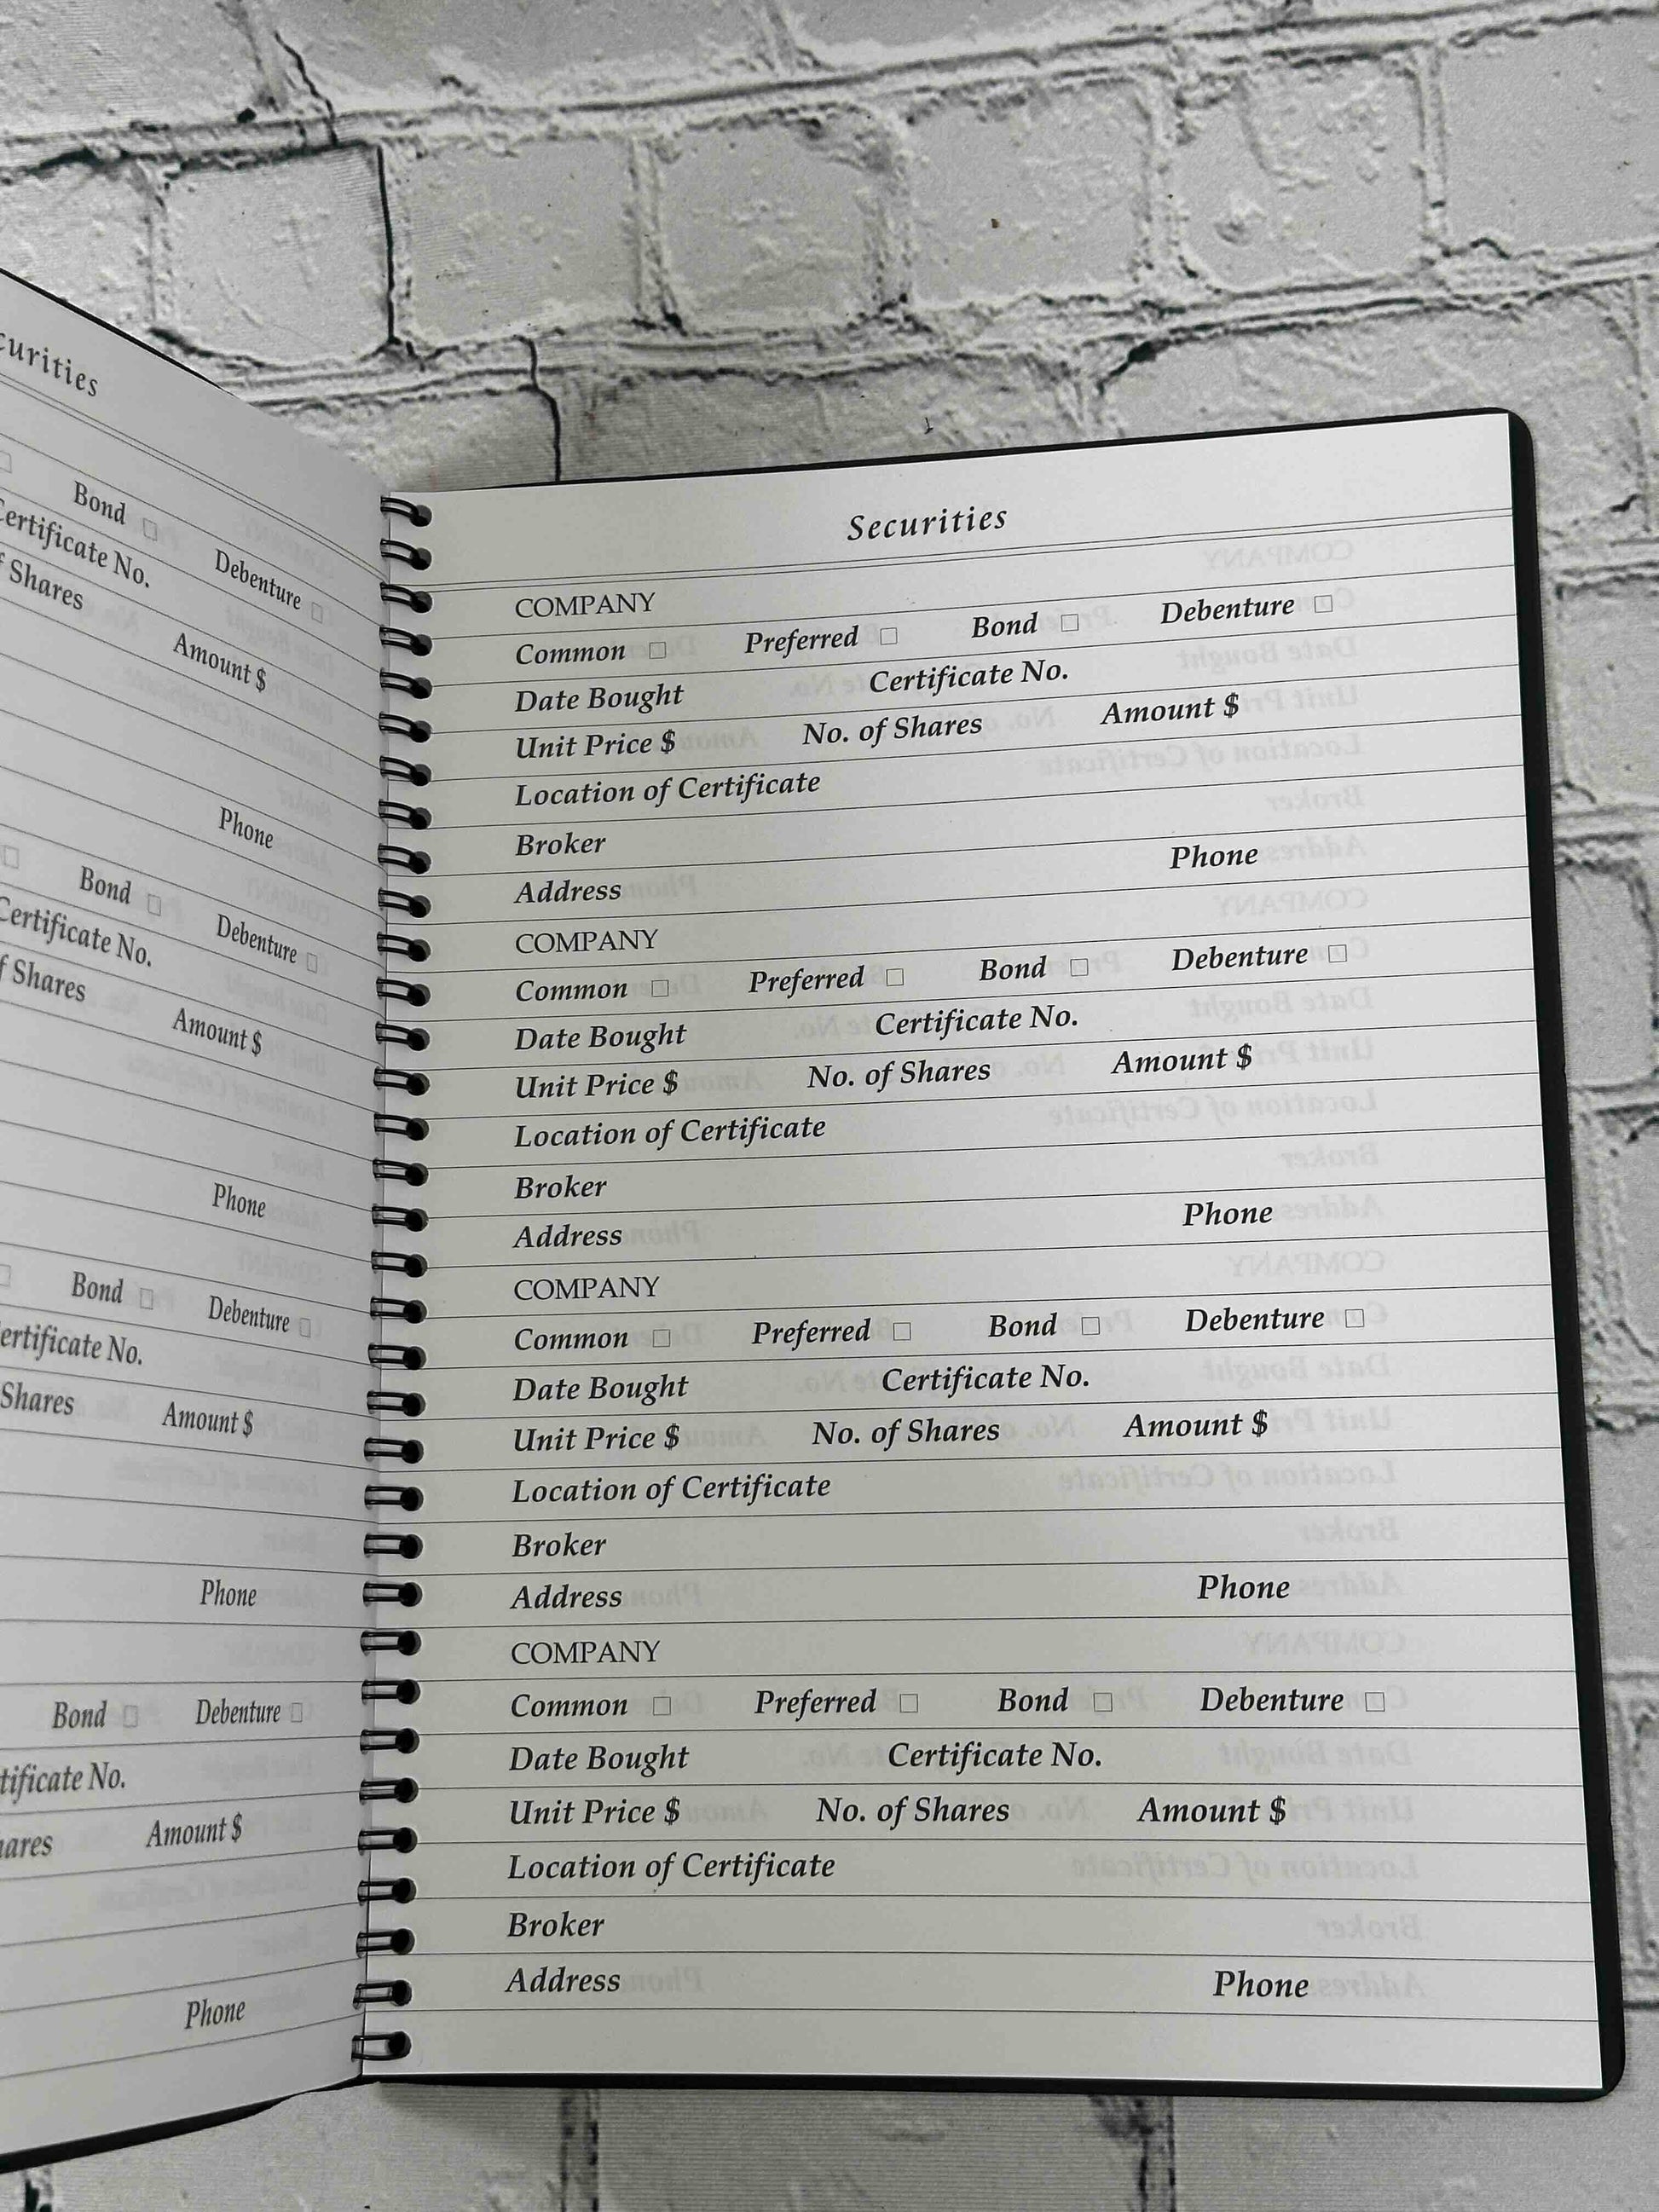 curities
Bond □ Debenture □
Certificate No.
f Shares Amount $
Phone
Bond □ Debenture □
Certificate No.
f Shares Amount $
Phone
Bond □ Debenture □
ertificate No.
Shares Amount $
Phone
Bond □ Debenture □
tificate No.
ares Amount $
Phone
Securities
COMPANY
Common □ Preferred □ Bond □ Debenture □
Date Bought Certificate No.
Unit Price $ No. of Shares Amount $
Location of Certificate
Broker
Address Phone
COMPANY
Common □ Preferred □ Bond □ Debenture □
Date Bought Certificate No.
Unit Price $ No. of Shares Amount $
Location of Certificate
Broker
Address Phone
COMPANY
Common □ Preferred □ Bond □ Debenture □
Date Bought Certificate No.
Unit Price $ No. of Shares Amount $
Location of Certificate
Broker
Address Phone
COMPANY
Common □ Preferred □ Bond □ Debenture □
Date Bought Certificate No.
Unit Price $ No. of Shares Amount $
Location of Certificate
Broker
Address Phone